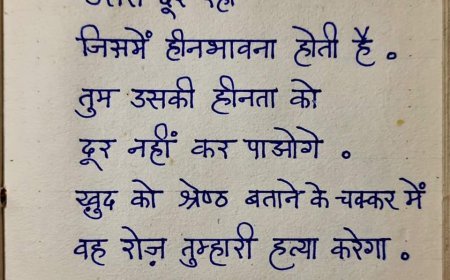 उससे दूर रहो
जिसमें हीनभावना होती है ०
तुम उसकी हीनता को
दूर नहीं कर पाओगे ०
ख़ुद को श्रेष्ठ बताने के चक्कर में
वह रोज़ तुम्हारी हत्या करेगा ०